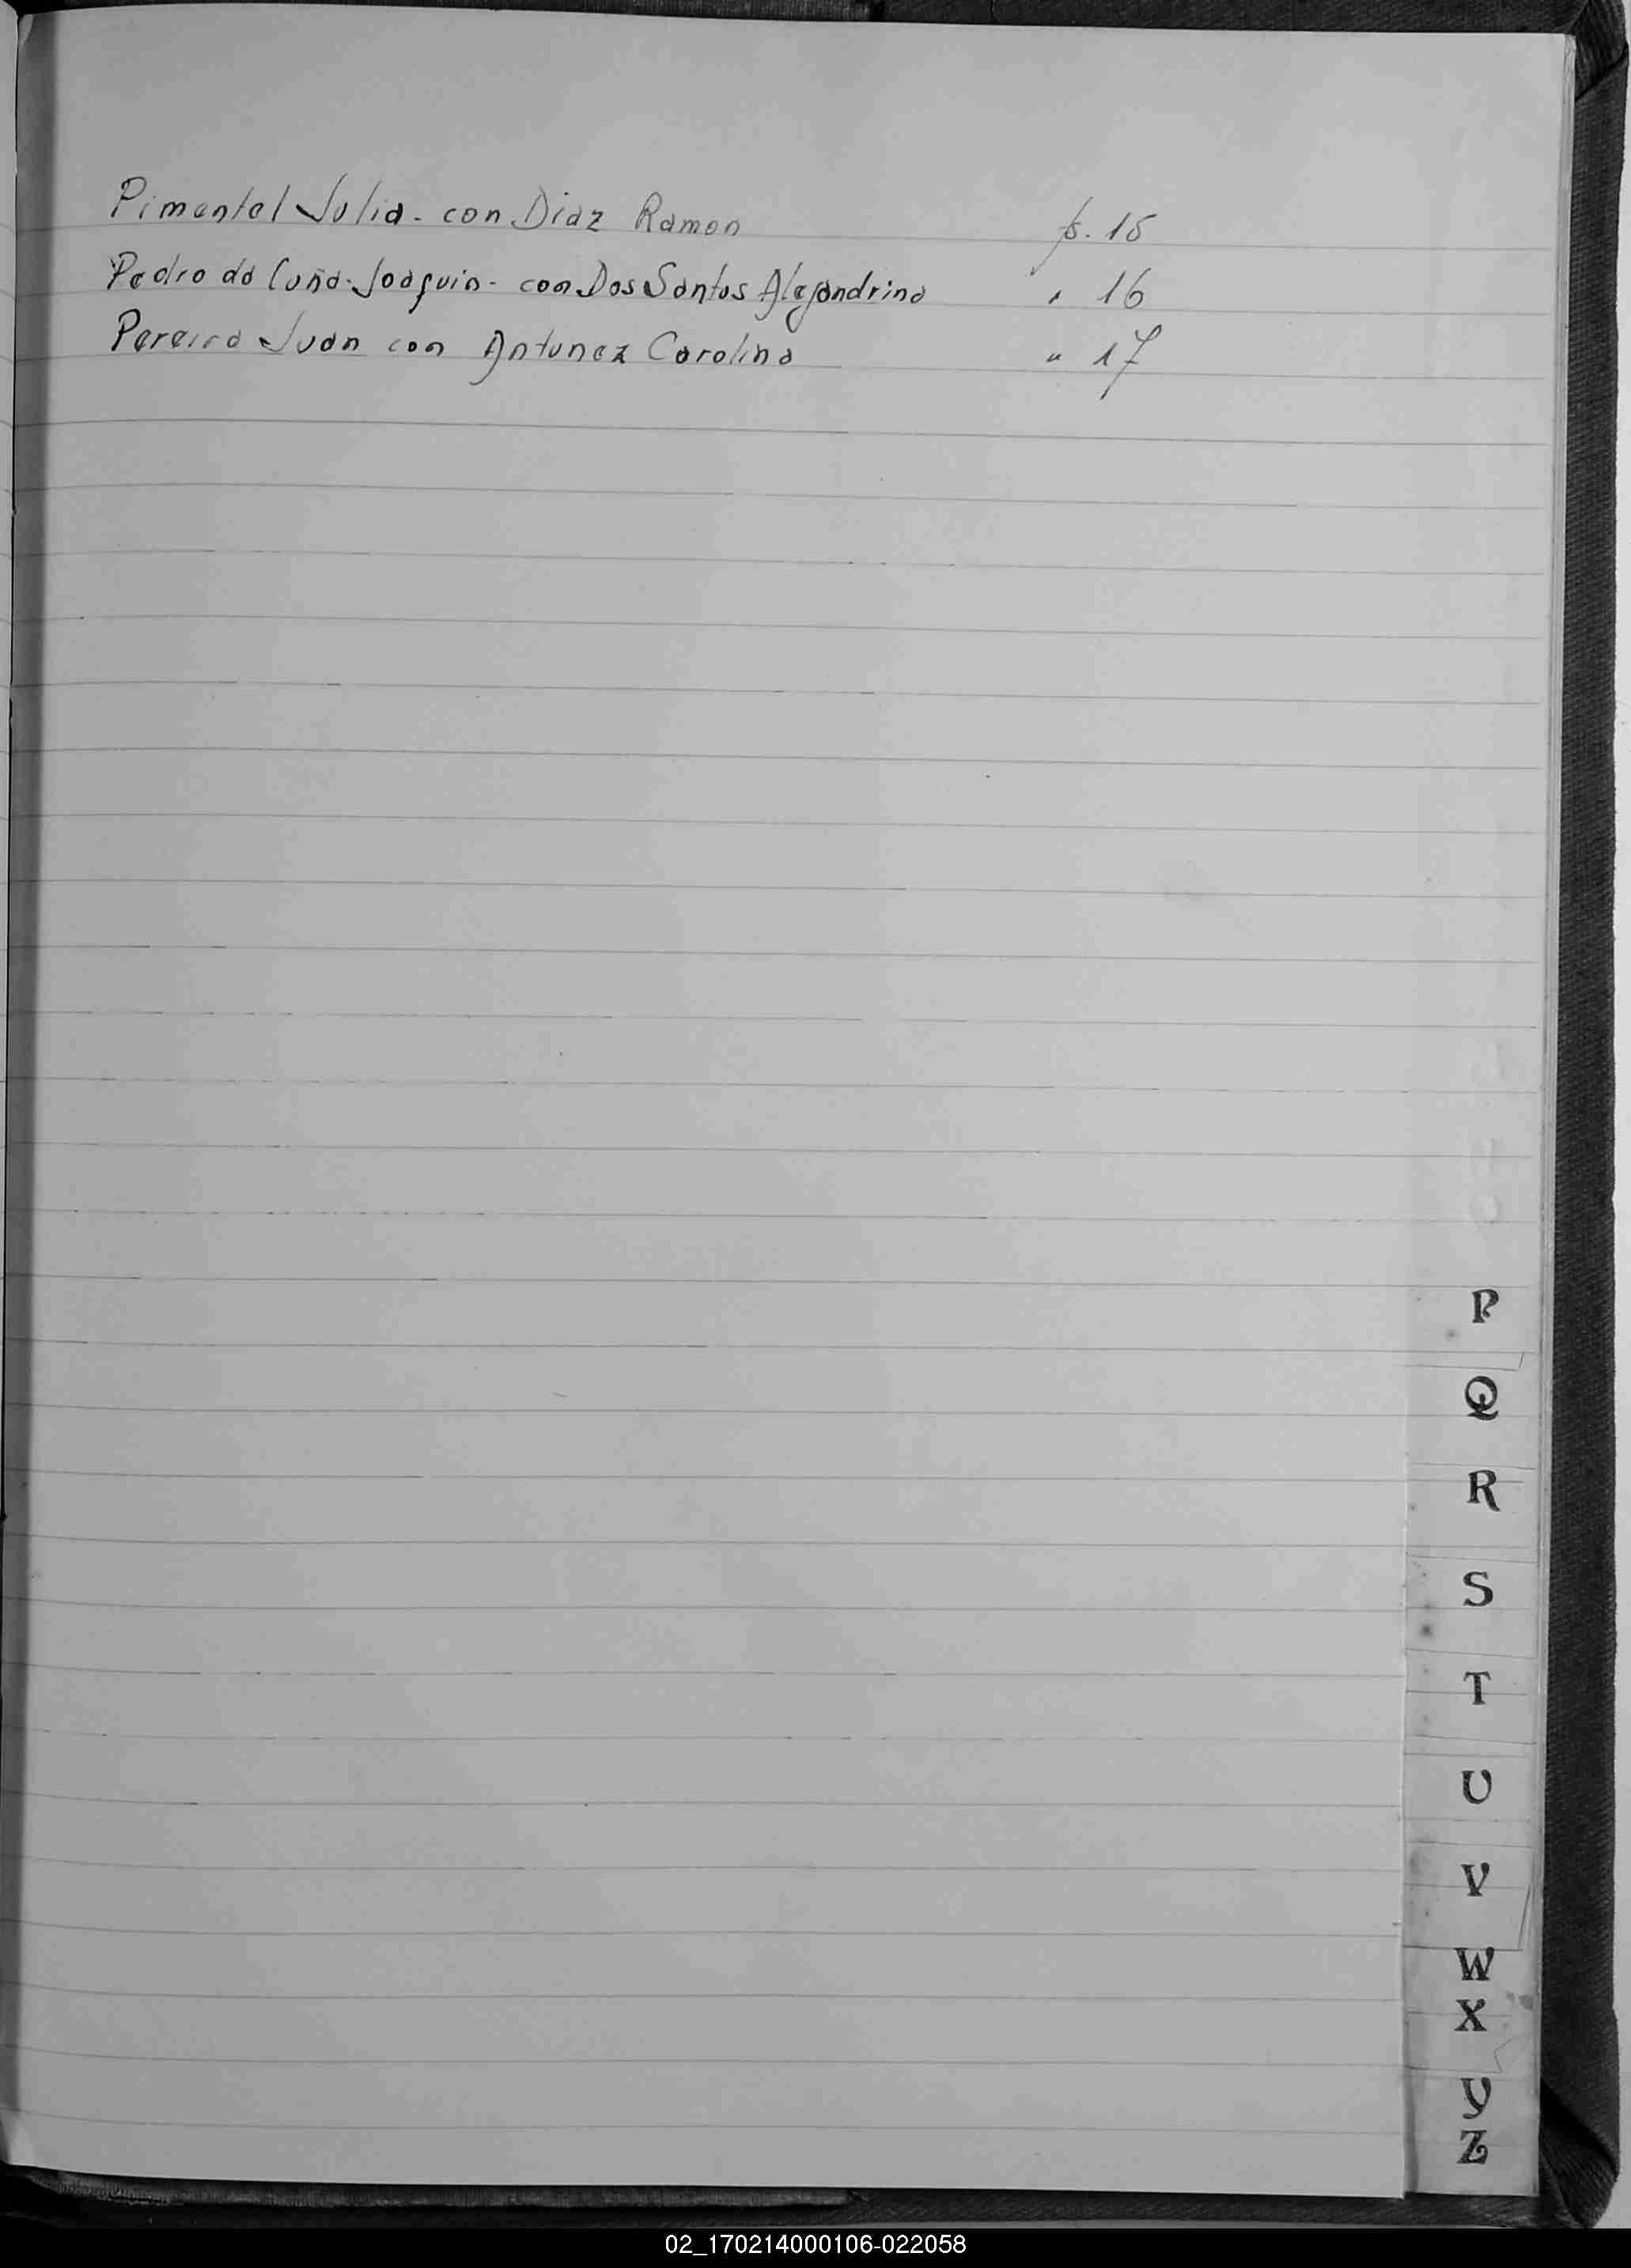 Pimentel Julia - con Diaz Ramon fs. 15
Pedro da Cuña - Joaquin - con Dos Santos Alejandrina " 16
Pereira Juan con Antunez Carolina " 17
P
Q
R
S
T
U
V
W
X
Y
Z
02_170214000106-022058